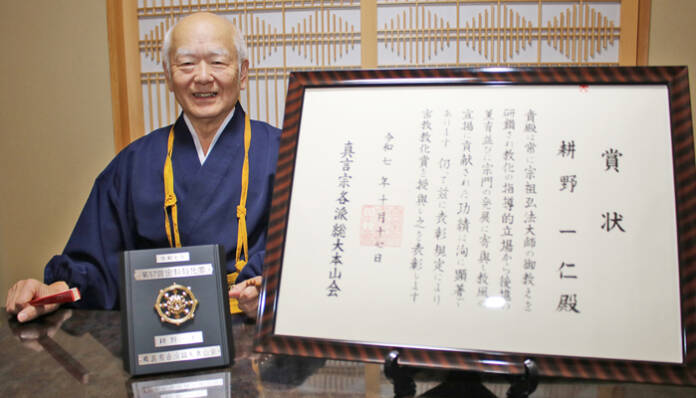 賞状
耕野 一仁 殿
貴殿は常に宗祖弘法大師の御教えを
研鑽され教化の指導的立場から後進の
薫育並びに宗門の発展に寄与し教風
宣揚に貢献された功績は洵に顕著で
あります 仍って茲に表彰規定により
密教教化賞を授与し之を表彰します
令和七年十月十七日
真言宗各派総大本山会
第57回密教教化賞
耕野
真言宗各派総大本山会